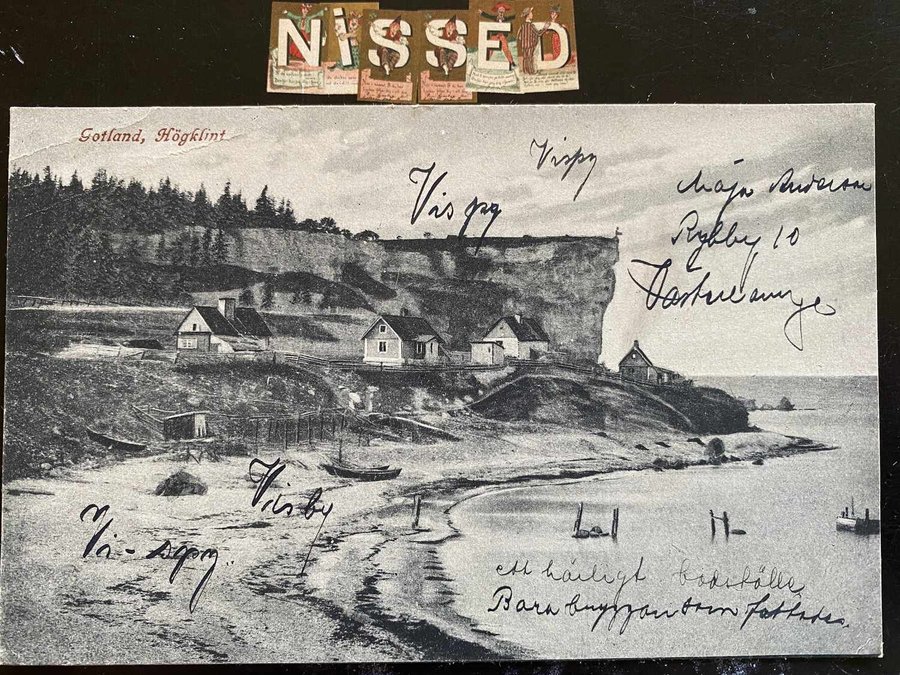 NiSSED
Gotland, Högklint
Vispy
Vispy
Maja Anderson
Rybby 10
Visby
Vi-spy.
ett härligt badställe
Bara bryggan som fattades.